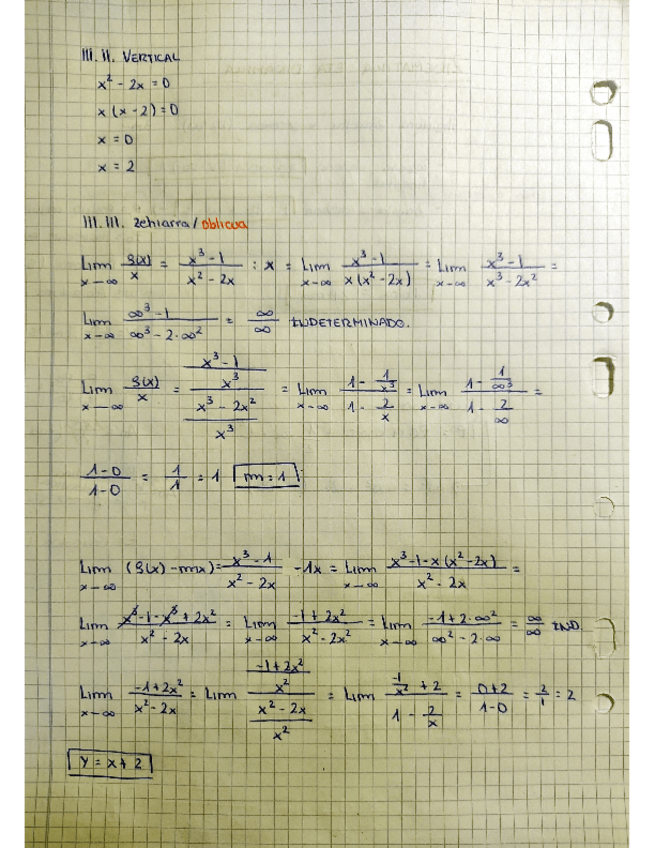 III. II. VERTICAL
x² - 2x = 0
x (x - 2) = 0
x = 0
x = 2
III. III. Zehiarra / oblicua
Lim x→∞ g(x)/x = (x³ - 1)/(x² - 2x) : x = Lim x→∞ (x³ - 1)/(x (x² - 2x)) = Lim x→∞ (x³ - 1)/(x³ - 2x²) =
Lim x→∞ (∞³ - 1)/(∞³ - 2·∞²) = ∞/∞ INDETERMINADO.
Lim x→∞ g(x)/x = ((x³ - 1)/x³)/((x³ - 2x²)/x³) = Lim x→∞ (1 - 1/x³)/(1 - 2/x) = Lim x→∞ (1 - 1/∞³)/(1 - 2/∞) =
(1-0)/(1-0) = 1/1 = 1 m = 1
Lim x→∞ (g(x) - mx) = (x³ - 1)/(x² - 2x) - 1x = Lim x→∞ (x³ - 1 - x (x² - 2x))/(x² - 2x) =
Lim x→∞ (x³ - 1 - x³ + 2x²)/(x² - 2x) = Lim x→∞ (-1 + 2x²)/(x² - 2x²) = Lim x→∞ (-1 + 2·∞²)/(∞² - 2·∞) = ∞/∞ IND.
Lim x→∞ (-1 + 2x²)/(x² - 2x) = Lim ((-1 + 2x²)/x²)/((x² - 2x)/x²) = Lim x→∞ (-1/x² + 2)/(1 - 2/x) = (0+2)/(1-0) = 2/1 = 2
y = x + 2